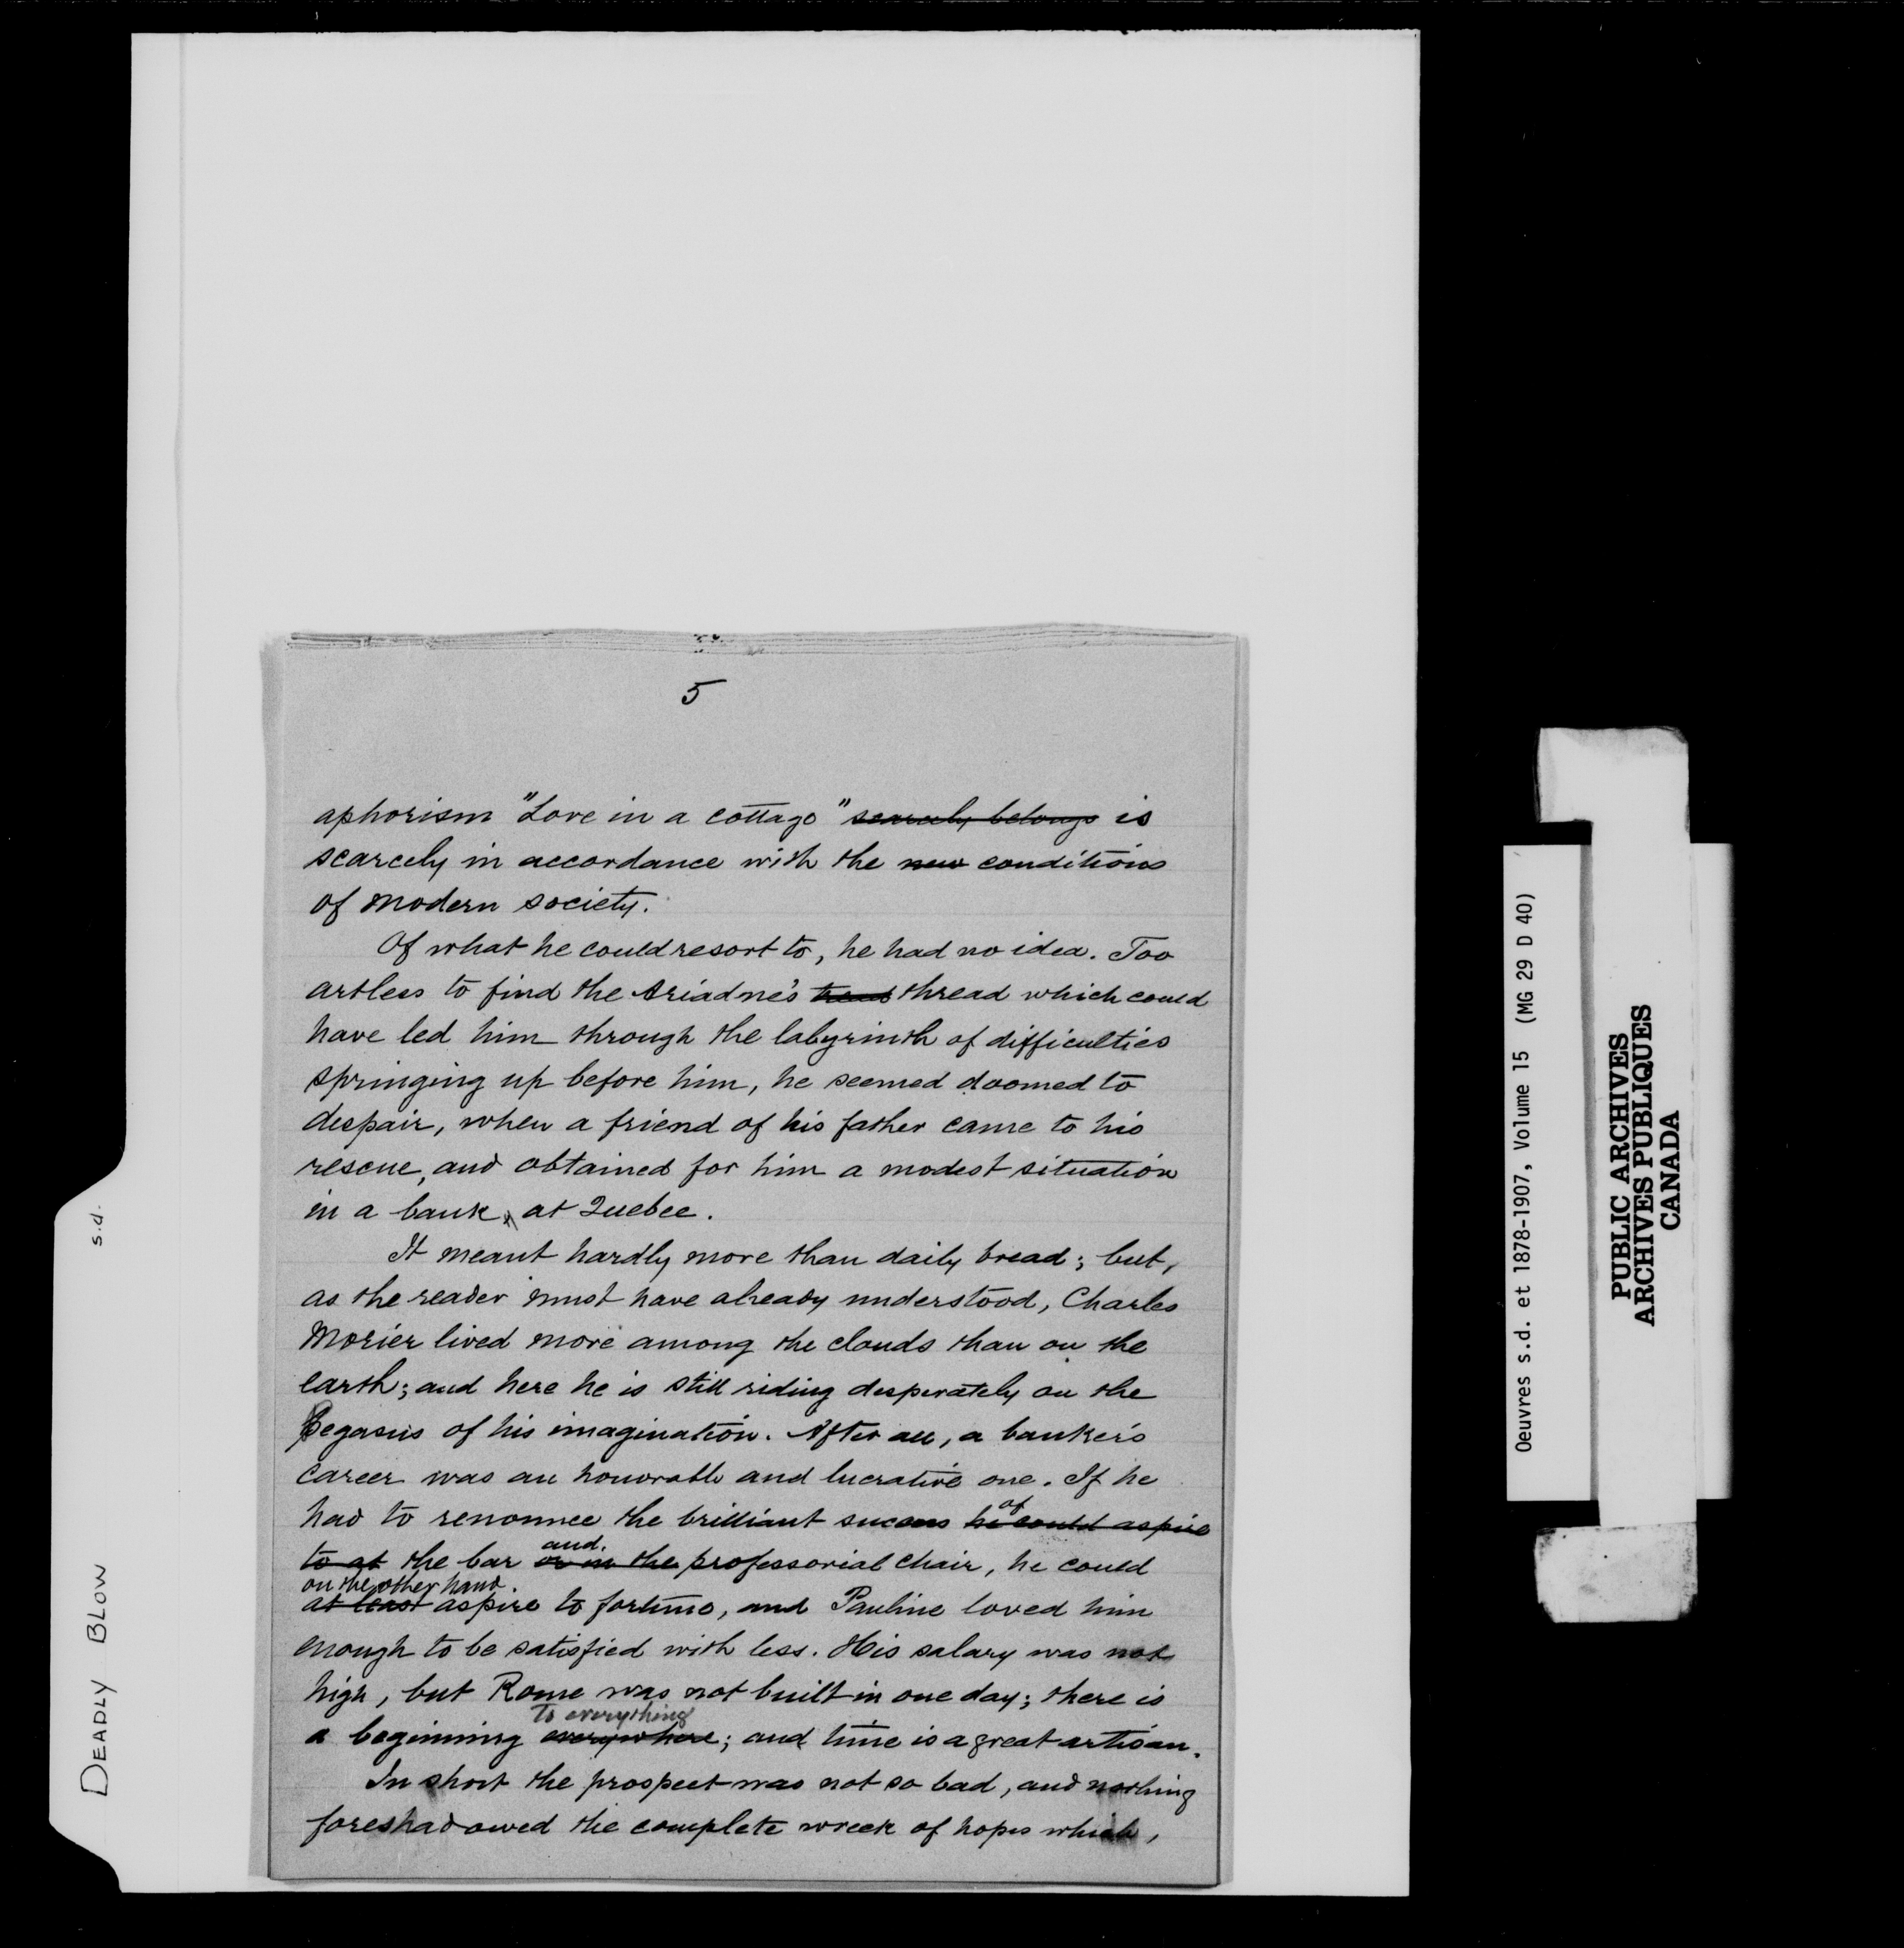 5
aphorism "Love in a cottage" scarcely belongs is
scarcely in accordance with the new conditions
of modern society.
Of what he could resort to, he had no idea. Too
artless to find the Ariadne's tread thread which could
have led him through the labyrinth of difficulties
springing up before him, he seemed doomed to
despair, when a friend of his father came to his
rescue, and obtained for him a modest situation
in a bank, at Quebec.
It meant hardly more than daily bread; but,
as the reader must have already understood, Charles
Morier lived more among the clouds than on the
earth; and here he is still riding desperately on the
Pegasus of his imagination. After all, a banker's
career was an honorable and lucrative one. If he
of
had to renounce the brilliant success he could aspire
and
to at the bar or in the professorial chair, he could
on the other hand.
at least aspire to fortune, and Pauline loved him
enough to be satisfied with less. His salary was not
high, but Rome was not built in one day; there is
To everything
a beginning everywhere; and time is a great artisan.
In short the prospect was not so bad, and nothing
foreshadowed the complete wreck of hopes which,
DEADLY BLOW
s.d.
Oeuvres s.d. et 1878-1907, Volume 15 (MG 29 D 40)
PUBLIC ARCHIVES
ARCHIVES PUBLIQUES
CANADA